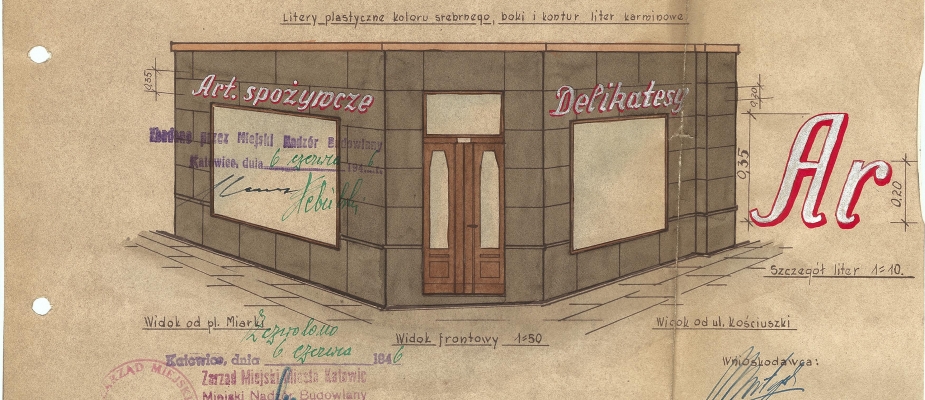 Litery plastyczne koloru srebrnego, boki i kontur liter karminowe.
0.35
Art. spożywcze
Delikatesy
0.20
Ar
0.35
0.20
przez Miejski Nadzór Budowlany
Katowice, dnia 6 czerwca 194
Szczegół liter 1=10.
Widok od pl. Miarki
Zezwolono
Widok frontowy 1=50
Widok od ul. Kościuszki
Katowice, dnia 6 czerwca 1946
Zarząd Miejski Miasta Katowic
Miejski Nadzór Budowlany
ZARZĄD MIEJSKI
Wnioskodawca: